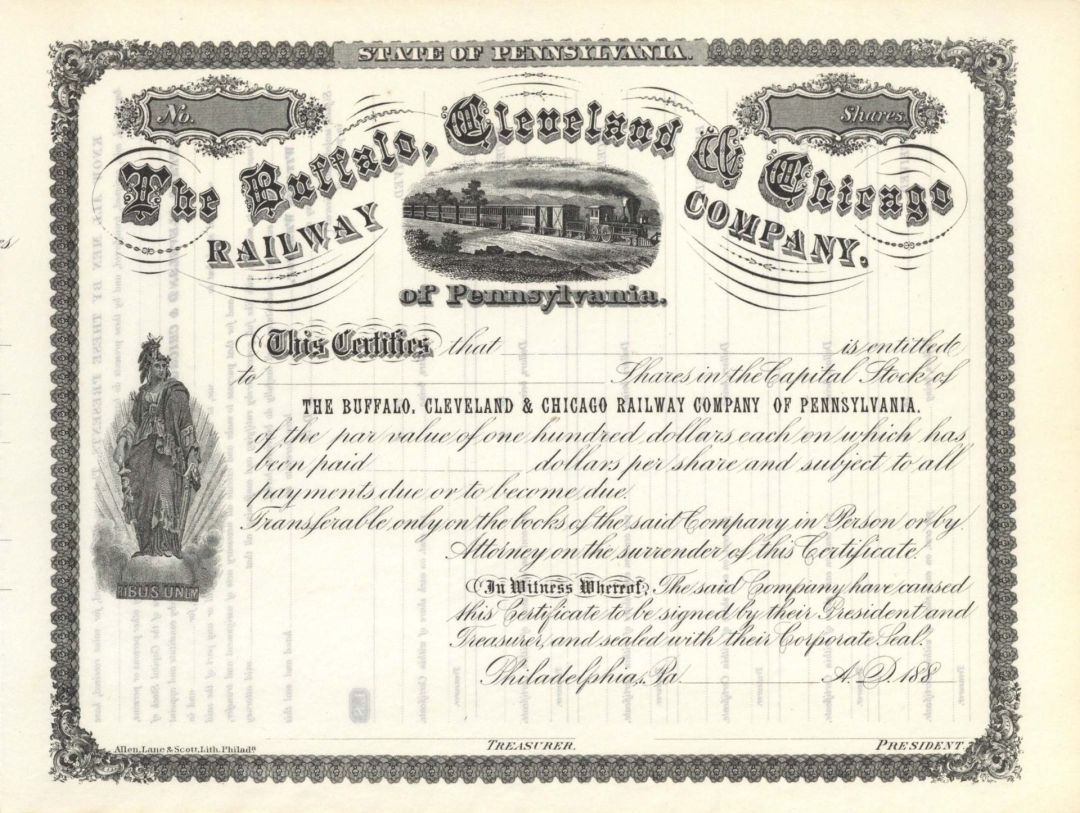 STATE OF PENNSYLVANIA.
No.
Shares.
The Buffalo, Cleveland & Chicago
RAILWAY COMPANY.
of Pennsylvania.
This Certifies that is entitled
to Shares in the Capital Stock of
THE BUFFALO, CLEVELAND & CHICAGO RAILWAY COMPANY OF PENNSYLVANIA.
of the par value of one hundred dollars each on which has
been paid dollars per share and subject to all
payments due or to become due.
Transferable only on the books of the said Company in Person or by
Attorney on the surrender of this Certificate.
RIBUS UNUM
In Witness Whereof, The said Company have caused
this Certificate to be signed by their President and
Treasurer, and sealed with their Corporate Seal.
Philadelphia, Pa A.D. 188
Allen, Lane & Scott, Lith. Philada.
TREASURER.
PRESIDENT.